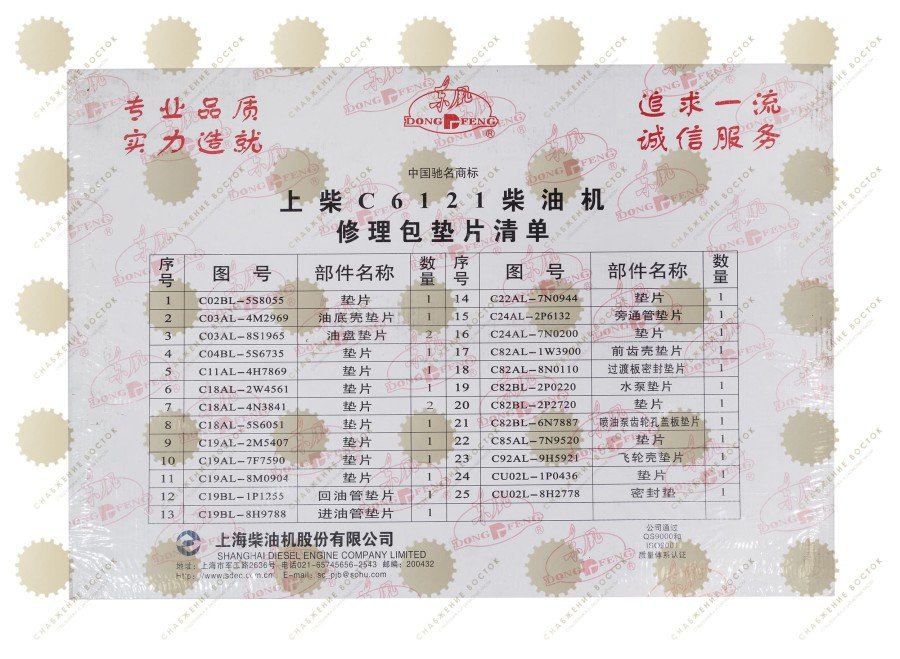 专业品质
实力造就
东风
DONG FENG
®
追求一流
诚信服务
中国驰名商标
上柴C6121柴油机
修理包垫片清单
序号 图号 部件名称 数量 序号 图号 部件名称 数量
1 C02BL-5S8055 垫片 1 14 C22AL-7N0944 垫片 1
2 C03AL-4M2969 油底壳垫片 1 15 C24AL-2P6132 旁通管垫片 1
3 C03AL-8S1965 油盘垫片 2 16 C24AL-7N0200 垫片 1
4 C04BL-5S6735 垫片 1 17 C82AL-1W3900 前齿壳垫片 1
5 C11AL-4H7869 垫片 1 18 C82AL-8N0110 过渡板密封垫片 1
6 C18AL-2W4561 垫片 1 19 C82BL-2P0220 水泵垫片 1
7 C18AL-4N3841 垫片 2 20 C82BL-2P2720 垫片 1
8 C18AL-5S6051 垫片 1 21 C82BL-6N7887 喷油泵齿轮孔盖板垫片 1
9 C19AL-2M5407 垫片 1 22 C85AL-7N9520 垫片 1
10 C19AL-7F7590 垫片 1 23 C92AL-9H5921 飞轮壳垫片 1
11 C19AL-8M0904 垫片 1 24 CU02L-1P0436 垫片 1
12 C19BL-1P1255 回油管垫片 1 25 CU02L-8H2778 密封垫 1
13 C19BL-8H9788 进油管垫片 1
上海柴油机股份有限公司
SHANGHAI DIESEL ENGINE COMPANY LIMITED
地址：上海市军工路2636号 电话021-65745656-2543 邮编：200432
Http://www.sdec.com.cn E-mail:sc_pjb@sohu.com
公司通过
QS9000和
ISO9001
质量体系认证
СНАБЖЕНИЕ ВОСТОК